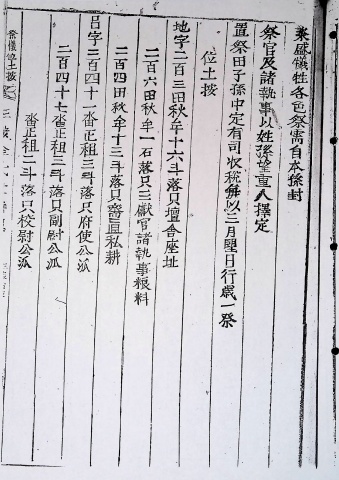 粢盛犧牲各色祭需自本孫封
祭官及諸執事以姓孫望重人擇定
置祭田子孫中定有司收稅備以三月朢日行歲一祭
位土按
地字二百三田秋牟十六斗落只壇舍座址
二百六田秋牟一石落只三獻官諸執事粮料
二百四田秋牟十三斗落只齋直私耕
呂字二百四十一畓正租三斗落只府使公派
二百四十七畓正租三斗落只副尉公派
畓正租二斗落只校尉公派
祭儀位土按